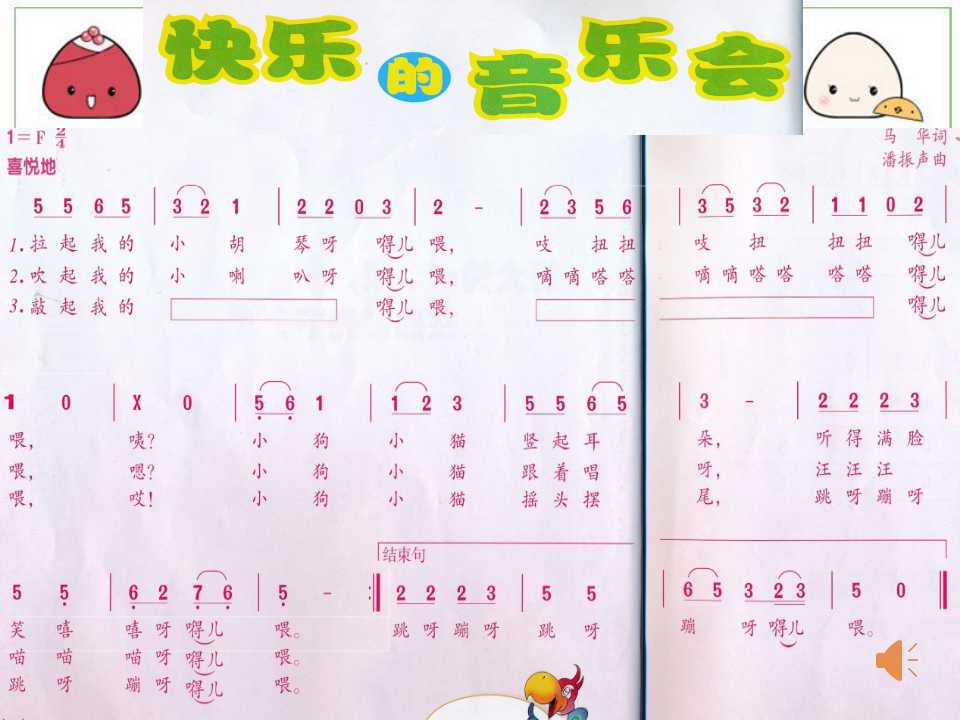 快乐的音乐会
1=F 2/4
马 华词
喜悦地
潘振声曲
5 5 6 5 | 3 2 1 | 2 2 0 3 | 2 - | 2 3 5 6 | 3 5 3 2 | 1 1 0 2 |
1.拉起我的 小 胡 琴呀 嘚儿 喂， 吱 扭扭 吱 扭 扭扭 嘚儿
2.吹起我的 小 喇 叭呀 嘚儿 喂， 嘀嘀嗒嗒 嘀嘀嗒嗒 嗒嗒 嘚儿
3.敲起我的 嘚儿 喂， 嘚儿
1 0 | X 0 | 5 6 1 | 1 2 3 | 5 5 6 5 | 3 - | 2 2 2 3 |
喂， 咦？ 小 狗 小 猫 竖起耳 朵， 听得满脸
喂， 嗯？ 小 狗 小 猫 跟着唱 呀， 汪汪汪
喂， 哎！ 小 狗 小 猫 摇头摆 尾， 跳呀蹦呀
结束句
5 5 | 6 2 7 6 | 5 - :| 2 2 2 3 | 5 5 | 6 5 3 2 3 | 5 0 ||
笑 嘻 嘻呀 嘚儿 喂。 跳呀蹦呀 跳 呀 蹦 呀 嘚儿 喂。
喵 喵 喵呀 嘚儿 喂。
跳 呀 蹦呀 嘚儿 喂。